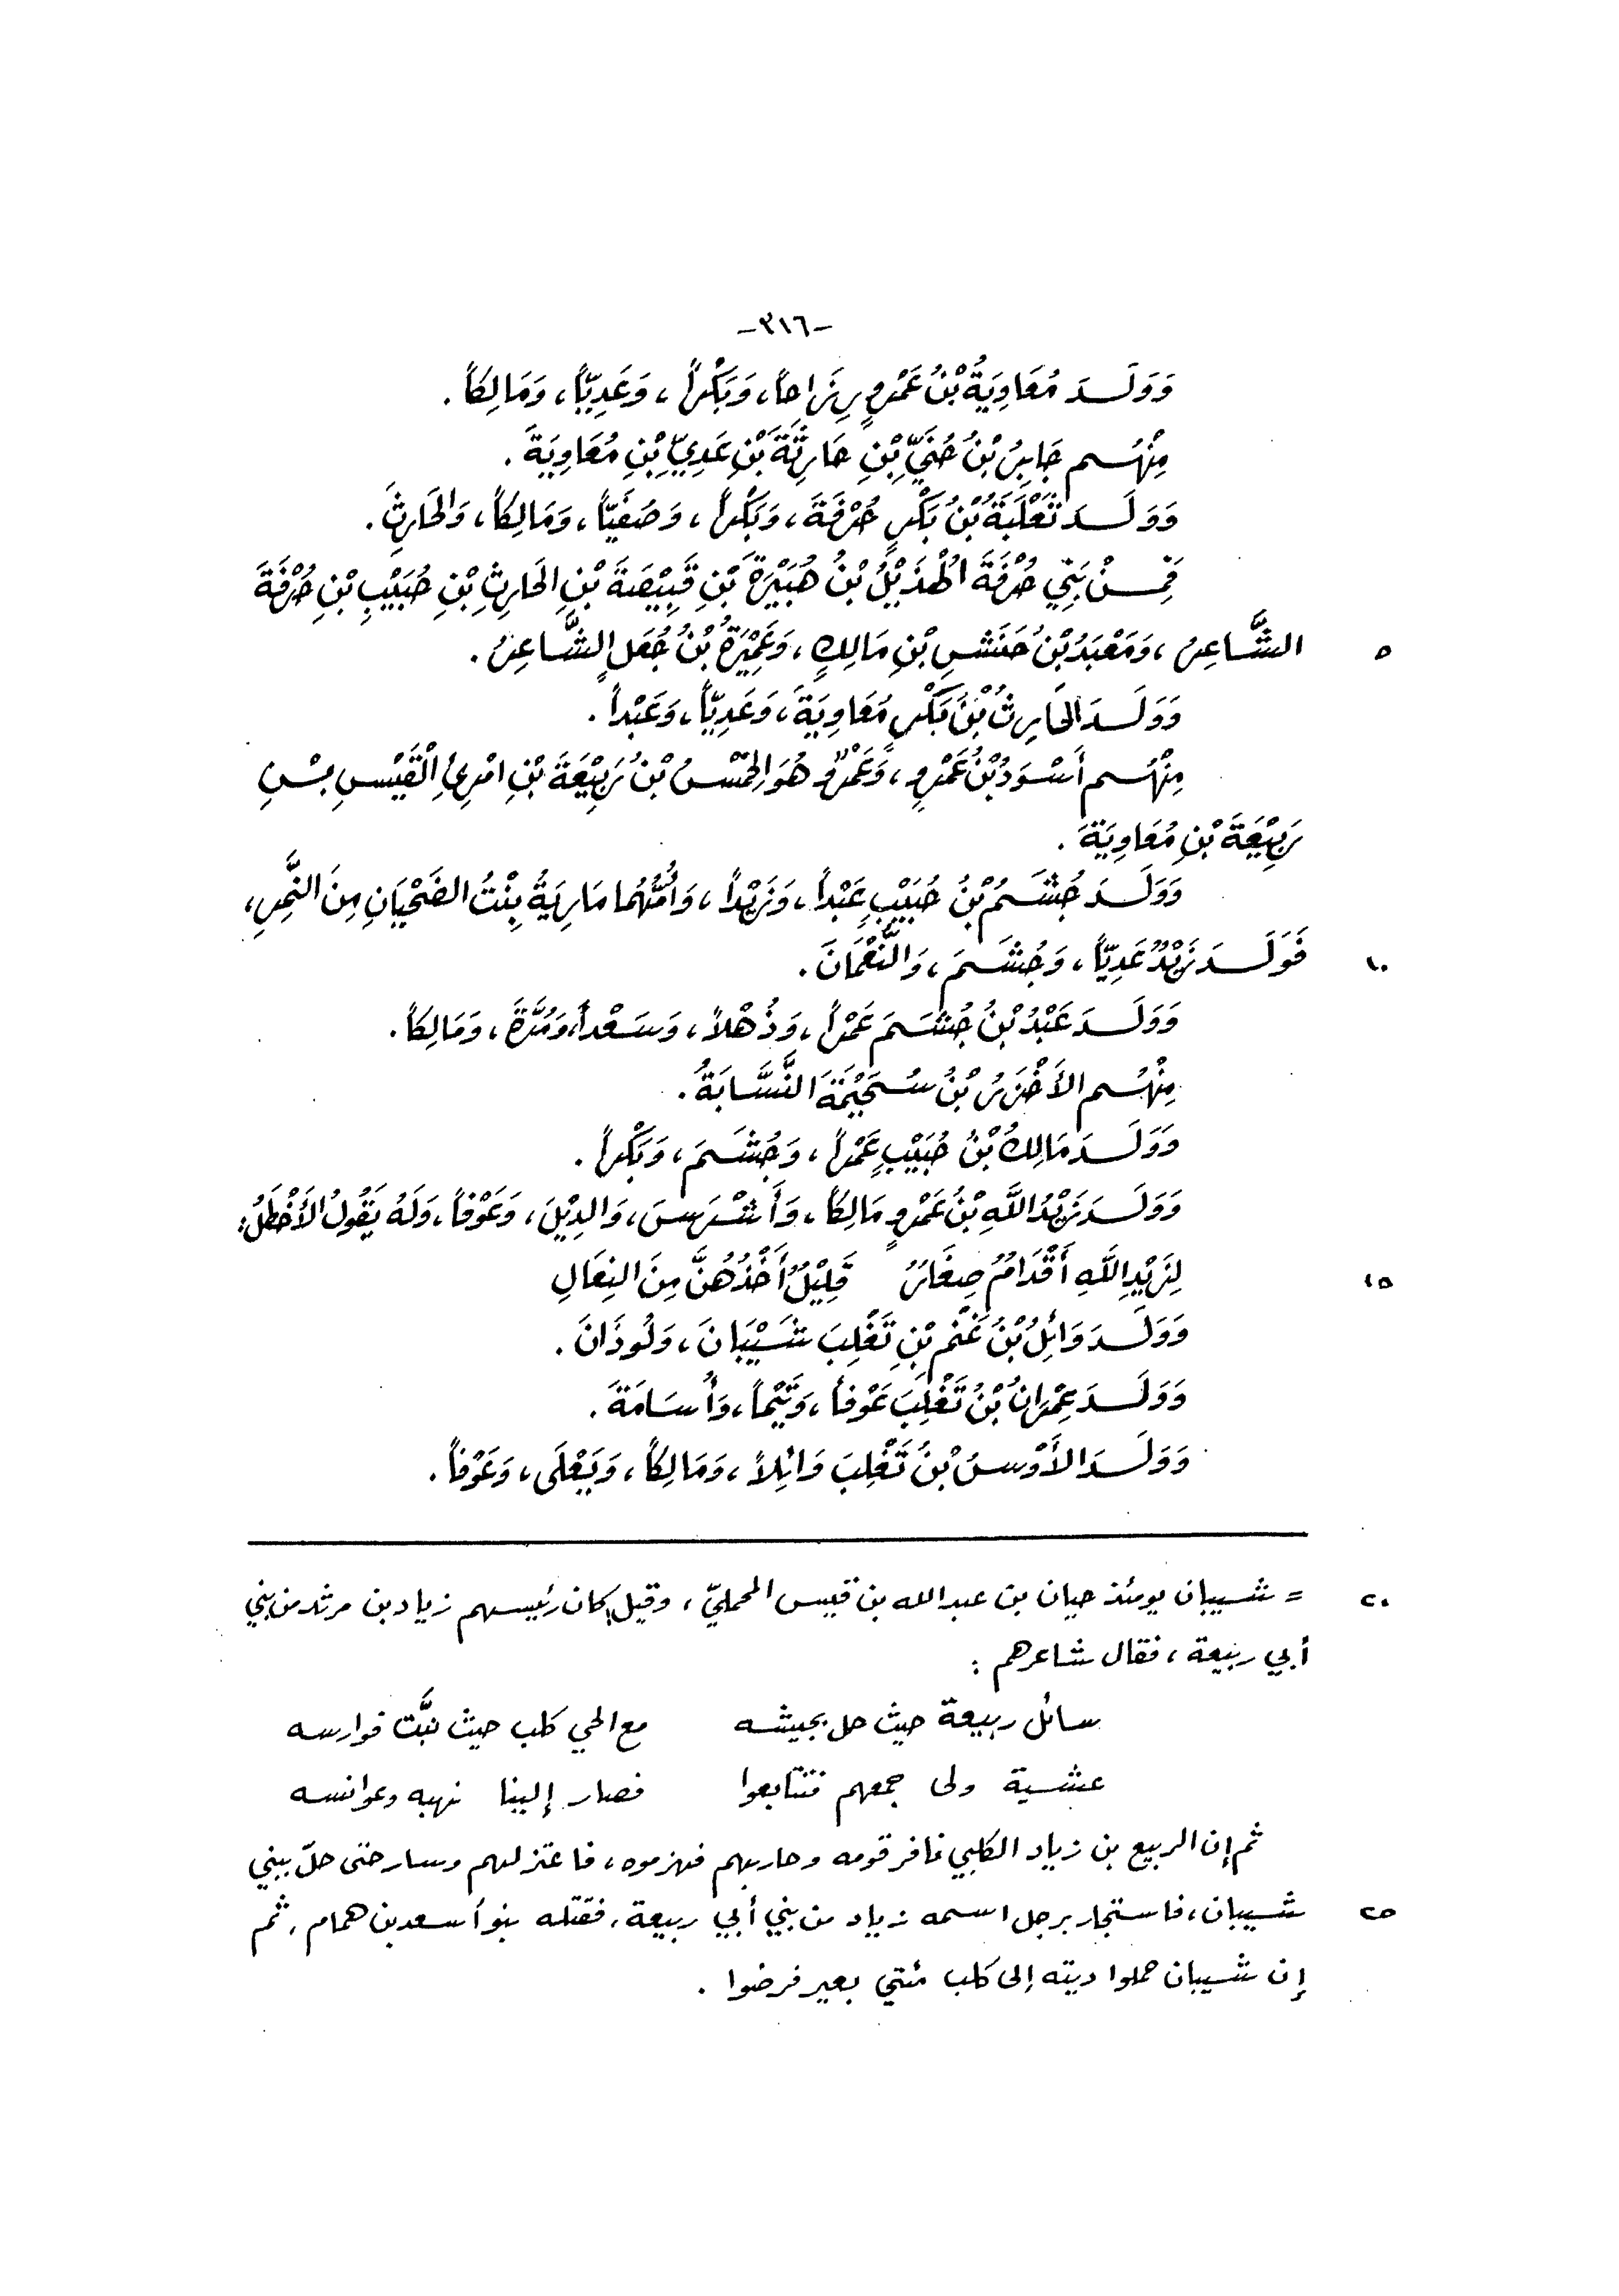 -٣١٦-
وَوَلَدَ مُعَاوِيَةُ بْنُ عَمْرٍو رِزَاحاً، وَبَكْراً، وَعَدِيّاً، وَمَالِكاً.
مِنْهُم جَابِرُ بْنُ حُنَيِّ بْنِ حَارِثَةَ بْنِ عَدِيِّ بْنِ مُعَاوِيَةَ.
وَوَلَدَ ثَعْلَبَةُ بْنُ بَكْرٍ حُرْفَةَ، وَبَكْراً، وَصُفَيّاً، وَمَالِكاً، وَالحَارِثَ.
فَمِنْ بَنِي حُرْفَةَ الْهُذَيْلُ بْنُ هُبَيْرَةَ بْنِ قَبِيْصَةَ بْنِ الحَارِثِ بْنِ حُبَيْبِ بْنِ حُرْفَةَ
٥ الشَّاعِرُ، وَمَعْبَدُ بْنُ حَنَشِ بْنِ مَالِكٍ، وَعَمِيْرَةُ بْنُ جُعَلٍ الشَّاعِرُ.
وَوَلَدَ الحَارِثُ بْنُ بَكْرٍ مُعَاوِيَةَ، وَعَدِيّاً، وَعَبْداً.
مِنْهُم أَسْوَدُ بْنُ عَمْرٍو، وَعَمْرٌو هُوَ الحِمْسُ بْنُ رَبِيْعَةَ بْنِ امْرِئِ الْقَيْسِ بْنِ
رَبِيْعَةَ بْنِ مُعَاوِيَةَ.
وَوَلَدَ جُشَمُ بْنُ حُبَيْبٍ عَبْداً، وَزَيْداً، وَأُمُّهُمَا مَارِيَةُ بِنْتُ الضَحْيَانِ مِنَ النَّمِرِ،
١٠ فَوَلَدَ زَيْدٌ عَدِيّاً، وَجُشَمَ، وَالنُّعْمَانَ.
وَوَلَدَ عَبْدُ بْنُ جُشَمَ عَمْراً، وَذُهْلاً، وَسَعْداً، وَمُرَّةَ، وَمَالِكاً.
مِنْهُم الأَخْزَرُ بْنُ سُحَيْمَةَ النَّسَّابَةُ.
وَوَلَدَ مَالِكُ بْنُ حُبَيْبٍ عَمْراً، وَجُشَمَ، وَبَكْراً.
وَوَلَدَ زَيْدُ اللَّهِ بْنُ عَمْرٍو مَالِكاً، وَأَشْرَسَ، وَالدِيْلَ، وَعَوْفاً، وَلَهُ يَقُولُ الأَخْطَلُ:
١٥ لِزَيْدِ اللَّهِ أَقْدَامٌ صِغَارٌ قَلِيْلٌ أَخْذُهُنَّ مِنَ النِعَالِ
وَوَلَدَ وَائِلُ بْنُ غَنْمِ بْنِ تَغْلِبَ شَيْبَانَ، وَلُوذَانَ.
وَوَلَدَ عِمْرَانُ بْنُ تَغْلِبَ عَوْفاً، وَتَيْماً، وَأُسَامَةَ.
وَوَلَدَ الأَوْسُ بْنُ تَغْلِبَ وَائِلاً، وَمَالِكاً، وَيَعْلَى، وَعَوْفاً.
٢٠ = شيبان يومئذ حيان بن عبدالله بن قيس المحمليّ، وقيل كان رئيسهم زياد بن مرثد من بني
أبي ربيعة، فقال شاعرهم:
سائل ربيعة حيث حل بجيشه مع الحي كلب حيث لبَّت فوارسه
عشية ولى جمعهم فتتابعوا فصار إلينا نهبه وعوانسه
ثم إن الربيع بن زياد الكلبي نافر قومه وحاربهم فهزموه، فاعتزلهم وسار حتى حلّ ببني
٢٥ شيبان، فاستجار برجل اسمه زياد من بني أبي ربيعة، فقتله بنو أسعد بن همام، ثم
إن شيبان حملوا ديته إلى كلب مئتي بعير فرضوا.